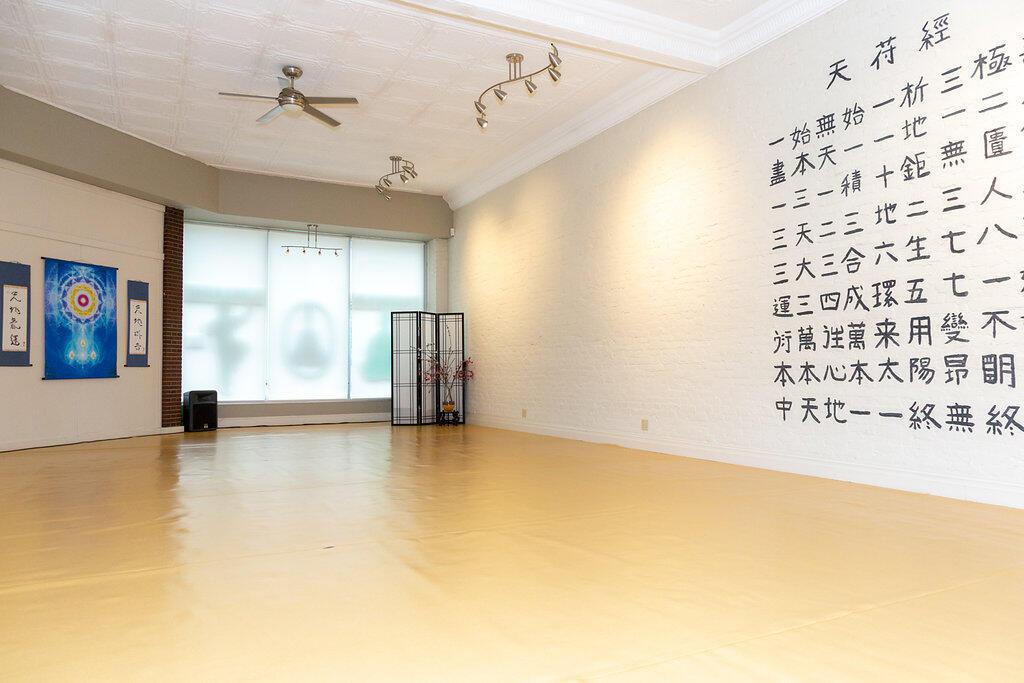 天苻經
一始無始一析三極
盡本天一一地一二
一三一積十鉅無匱
三天二三地二三人
三大三合六生七八
運三四成環五七一
衍萬徃萬来用變不
本本心本太陽昂眀
中天地一一終無終
天地氣運